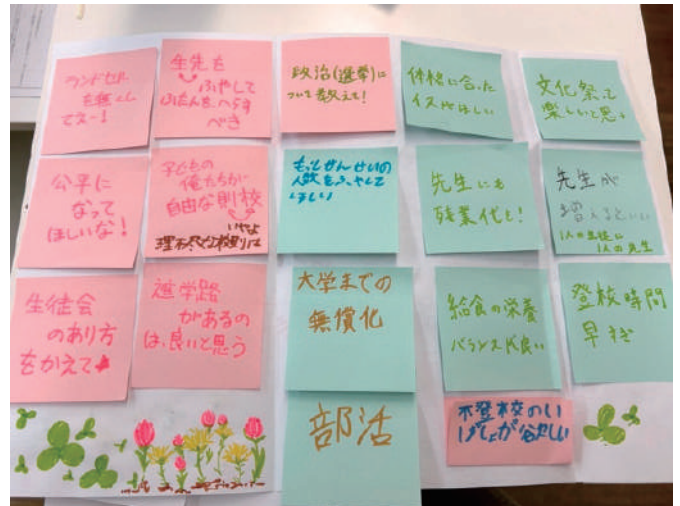 ランドセル
を無くし
てえー!
先生を
ふやして
ふたんをへらす
べき
政治(選挙)に
ついて教えて!
体格に合った
イスがほしい
文化祭って
楽しいと思う
公平に
なって
ほしいな!
子どもの
俺たちが
自由な学校
いやだよ
理不尽な校則には
もっとせんせいの
人数をふやして
ほしい
先生にも
残業代を!
先生が
増えるといい
1人の生徒に
1人の先生
生徒会
のあり方
をかえて
通学路
があるの
は、良いと思う
大学までの
無償化
給食の栄養
バランスが良い
登校時間
早すぎ
部活
不登校のい
ばしょが欲しい